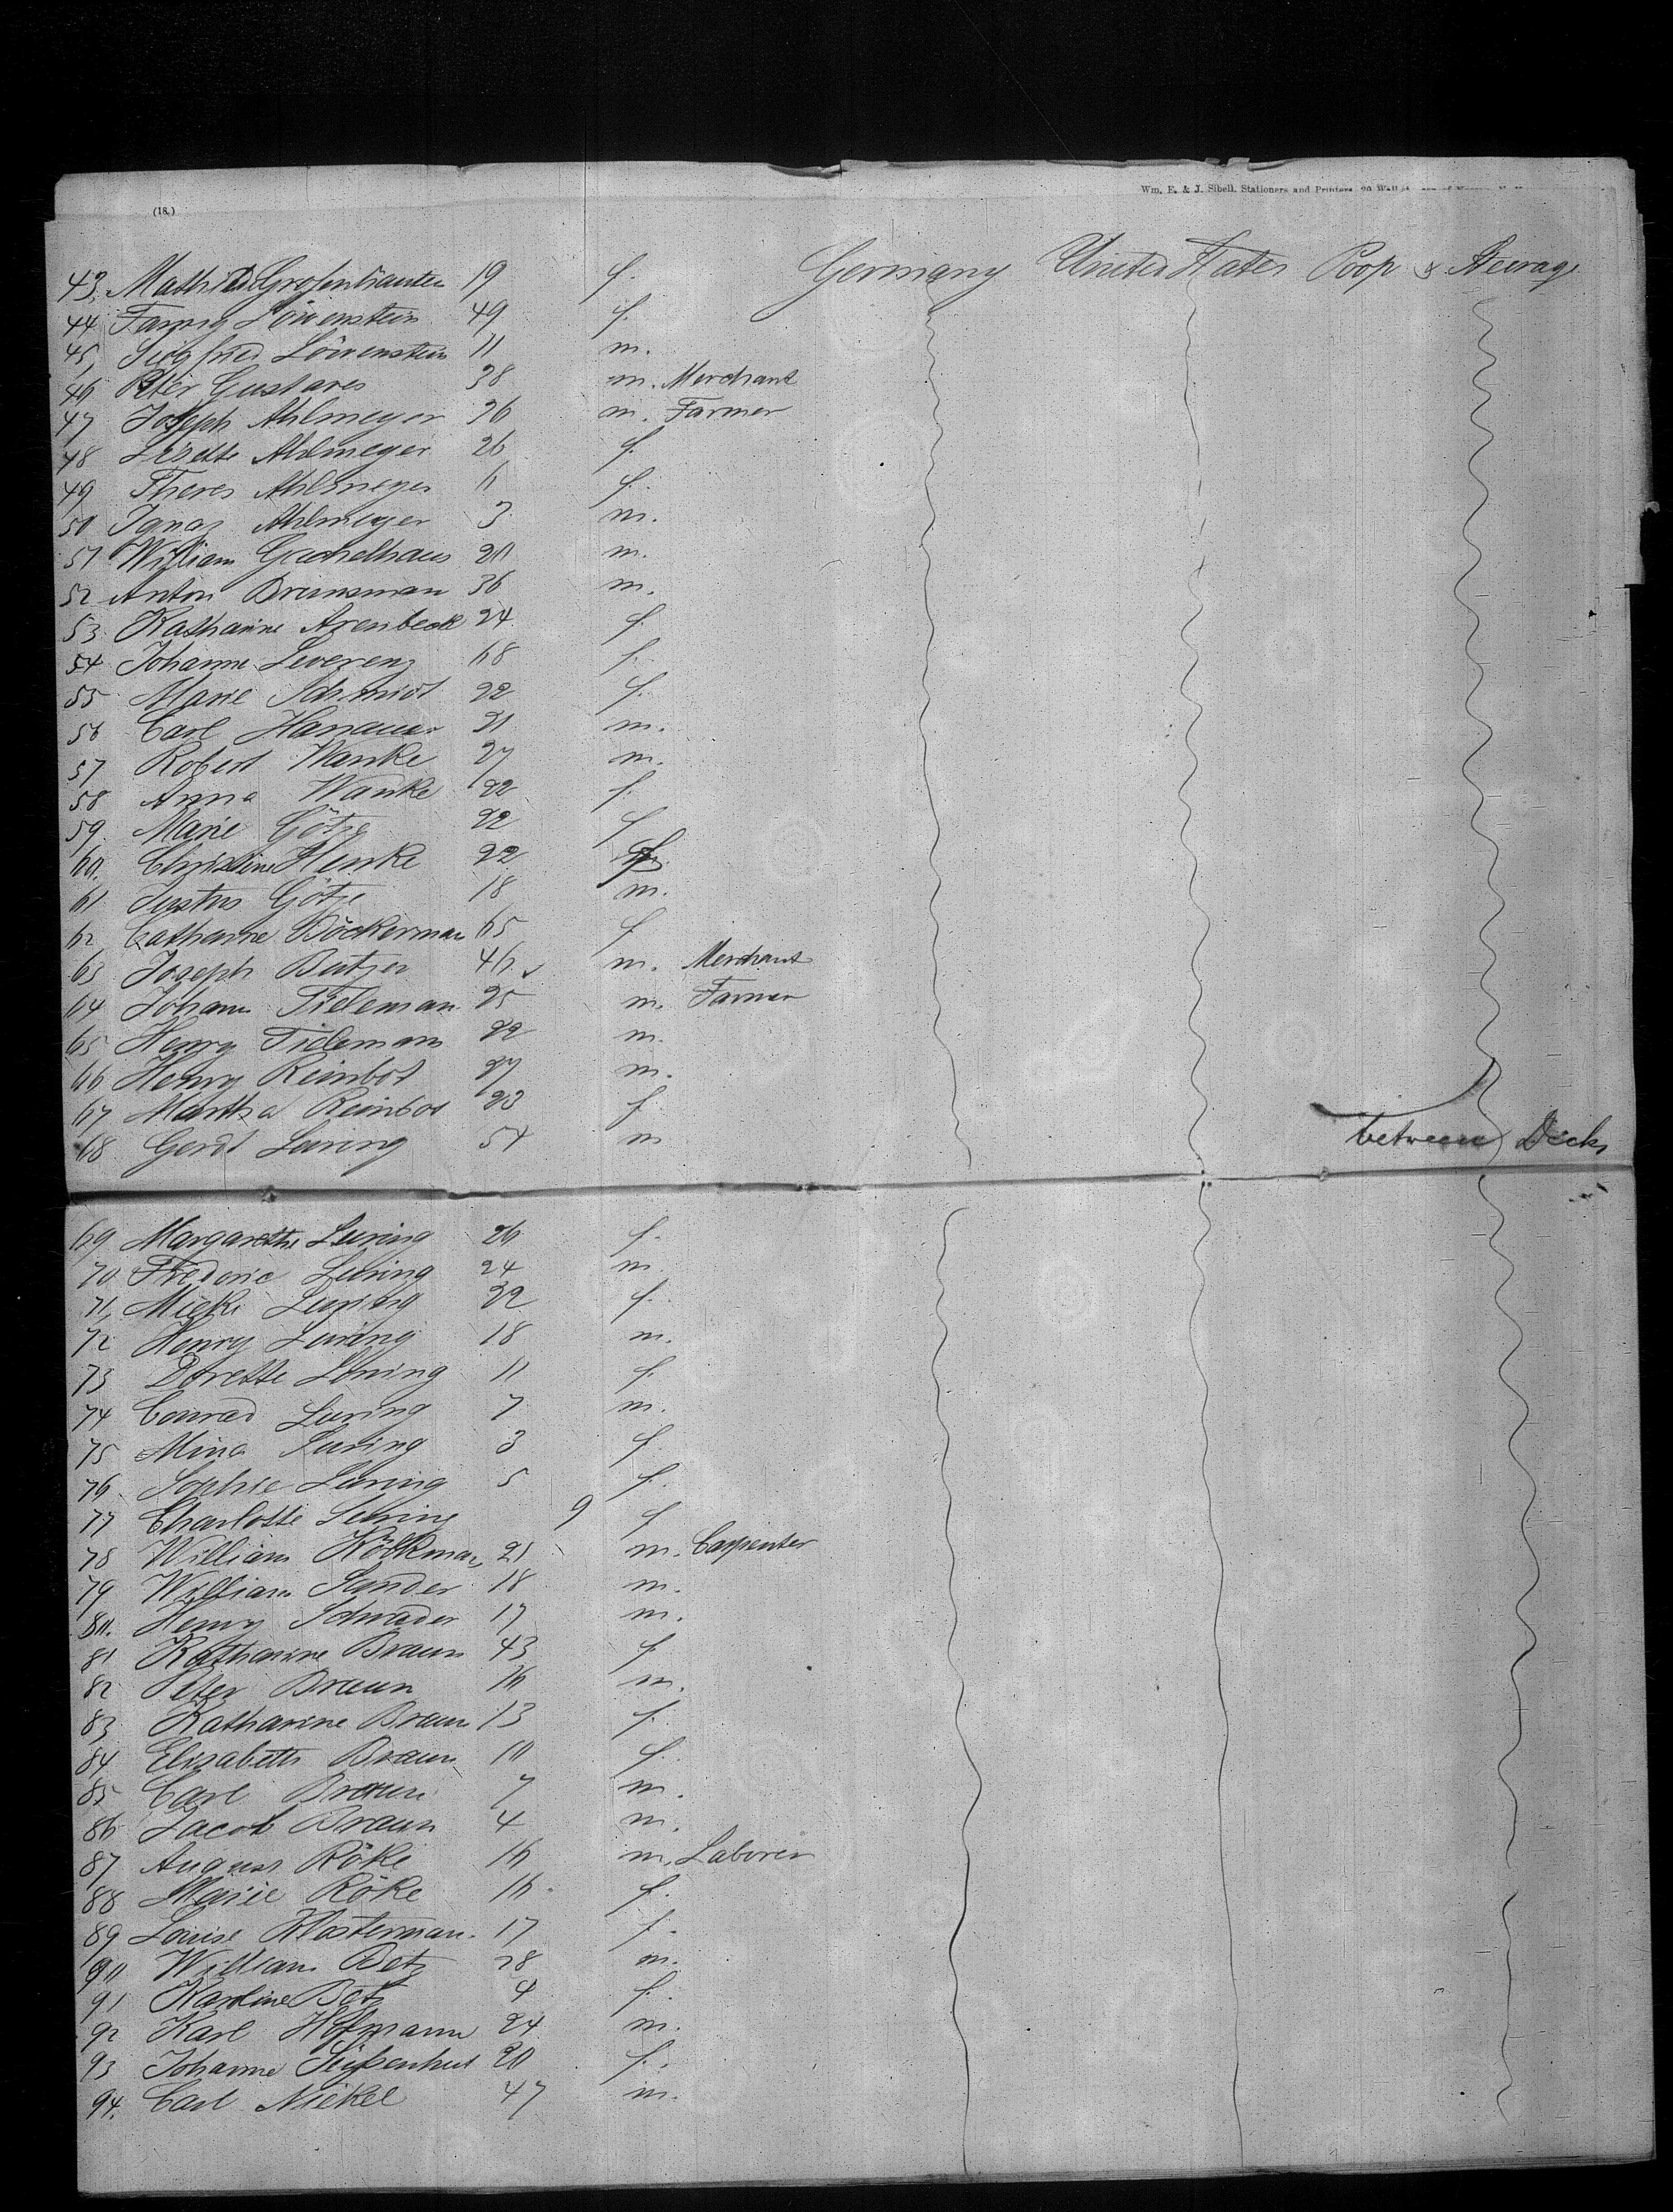 Wm. E. & J. Sibell, Stationers and Printers,
(18.)
43. 19 f. Germany United States Poop & Steerage
44 Fanny Löwenstein 49 f.
45, Siegfried Löwenstein 11 m.
46 Peter Gustaves 38 m. Merchant
47 Joseph Ahlmeyer 36 m. Farmer
48 Lisette Ahlmeyer 26 f.
49 Theres Ahlmeyer f.
50 Ignaz Ahlmeyer 3 m.
51 William 20 m.
52 Anton 36 m.
53 Katharine Arenbeck 24 f.
54 Johanne Leverenz 68 f.
55 Marie Schmidt 22 f.
56 Carl Hanauer 21 m.
57 Robert Wanke 27 m.
58 Anna Wanke 22 f.
59. Marie Götze 22 f
60. Christine Henke 22 f.
61 Justus Götze 18 m.
62 Catharine Böckerman 65 f
63 Joseph m. Merchant
64 Johann Tieleman 25 m. Farmer
65 Henry Tieleman 22 m.
66 Henry Reinbot 27 m.
67 Martha Reinbot 23 f
68 Gerdt Luring 54 m between Decks
69 Margarethe Luring 26 f.
70 Frederic Luring 24 m.
71, Luring 22 f.
72 Henry Luring 18 m.
73 Dorette Luring 11 f.
74 Conrad Luring 7 m.
75 Mina Luring 3 f.
76 Sophie Luring 5 f.
77 Charlotte Luring 9 f
78 William 21 m. Carpenter
79 William Sander 18 m.
80. Henry Schrader 17 m.
81 Katharine Braun 43 f.
82 Peter Braun 16 m.
83 Katharine Braun 13 f.
84 Elisabeth Braun 10 f.
85 Carl Braun 7 m.
86 Jacob Braun 4 m.
87 August Röke 16 m. Laborer
88 Marie Röke 16 f.
89 Louise Klosterman 17 f.
90 William Betz 28 m.
91 Karoline Betz 4 f.
92 Karl Hofmann 24 m.
93 Johanne 20 f.
94. Carl Nickel 47 m.